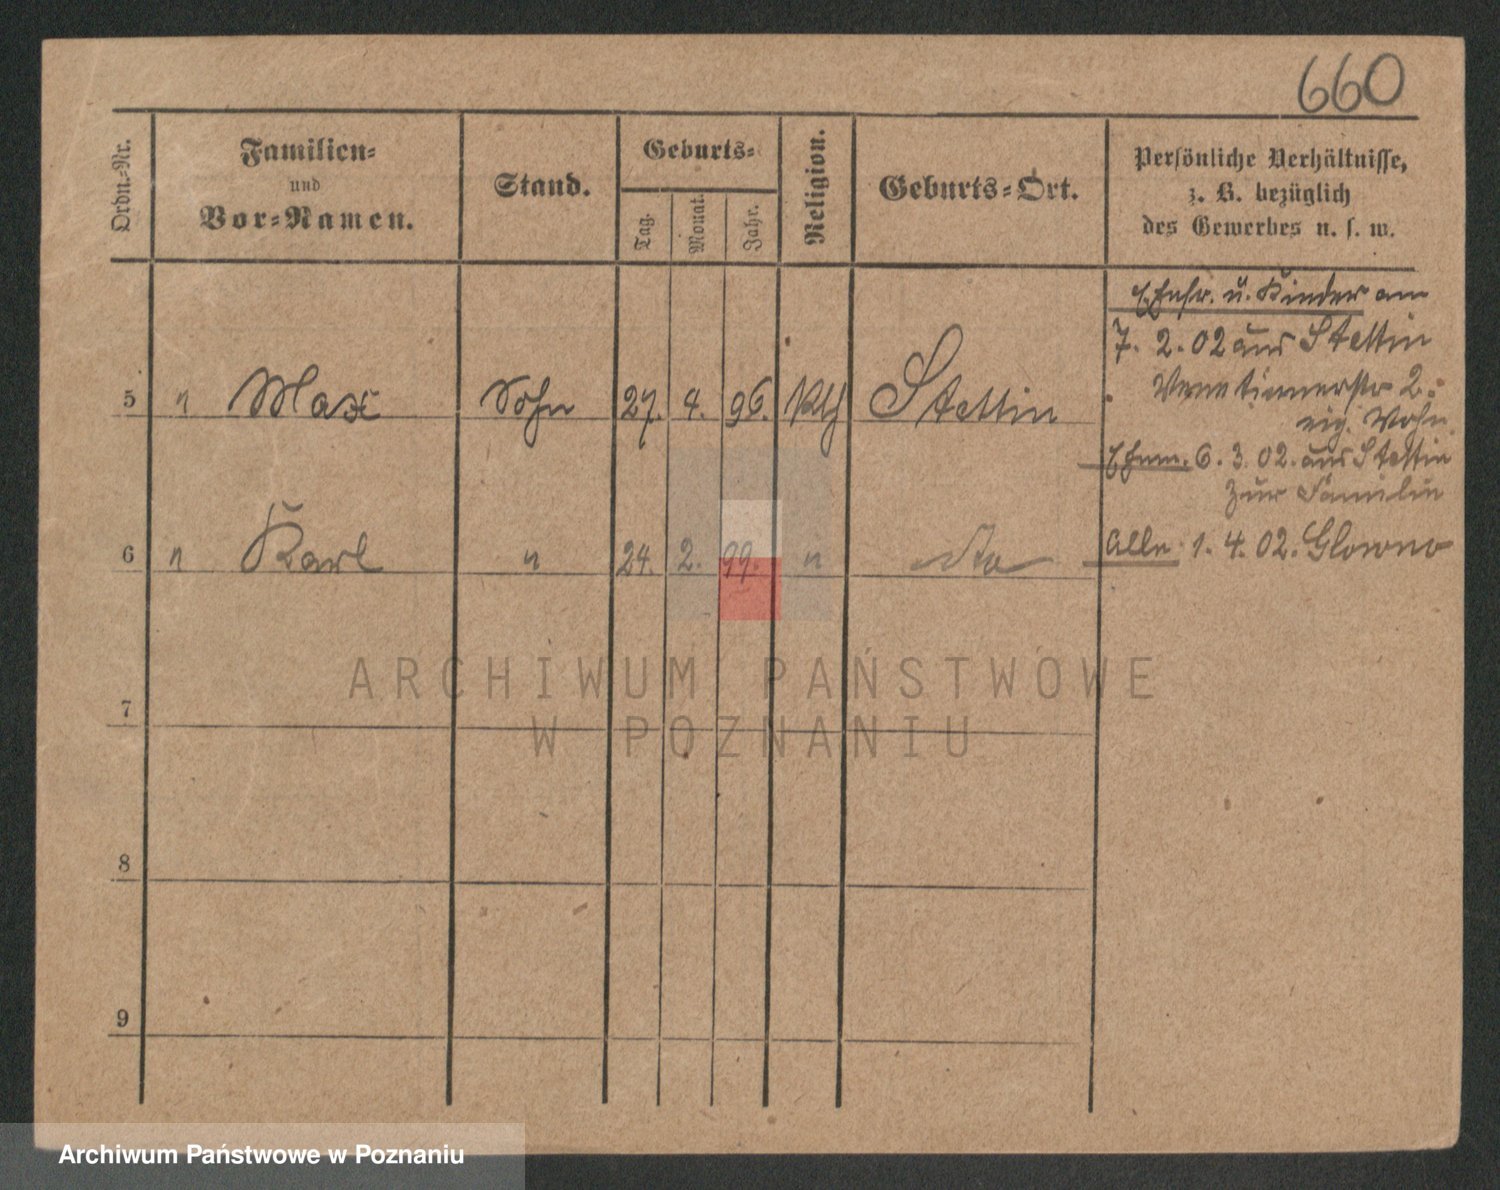 660
Ordn.-Nr.
Familien-
und
Vor-Namen.
Stand.
Geburts-
Tag.
Monat.
Jahr.
Religion.
Geburts-Ort.
Persönliche Verhältnisse,
z. B. bezüglich
des Gewerbes u. s. w.
Ehefr. u. Kinder am
7. 2. 02 aus Stettin
2.
eig. Wohn.
5 " Max Sohn 27. 4. 96. Kth Stettin
Ehem. 6. 3. 02. aus Stettin
zur Familie
6 " Karl " 24. 2. 99. " dto
Alle 1. 4. 02. Glowno
7
8
9
ARCHIWUM PAŃSTWOWE
W POZNANIU
Archiwum Państwowe w Poznaniu